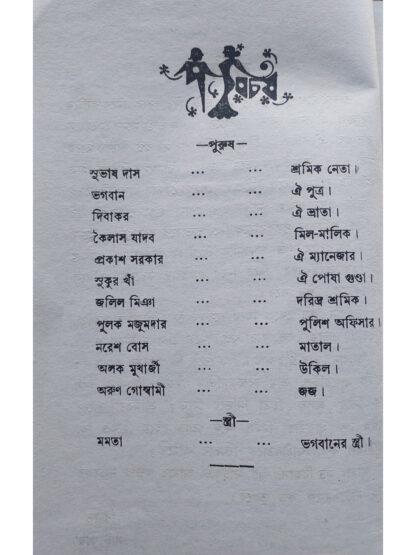 পরিচয়
—পুরুষ—
সুভাষ দাস ... ... শ্রমিক নেতা।
ভগবান ... ... ঐ পুত্র।
দিবাকর ... ... ঐ ভ্রাতা।
কৈলাস যাদব ... ... মিল-মালিক।
প্রকাশ সরকার ... ... ঐ ম্যানেজার।
সুকুর খাঁ ... ... ঐ পোষা গুণ্ডা।
জলিল মিঞা ... ... দরিদ্র শ্রমিক।
পুলক মজুমদার ... ... পুলিশ অফিসার।
নরেশ বোস ... ... মাতাল।
অলক মুখার্জী ... ... উকিল।
অরুণ গোস্বামী ... ... জজ।
—স্ত্রী—
মমতা ... ... ভগবানের স্ত্রী।